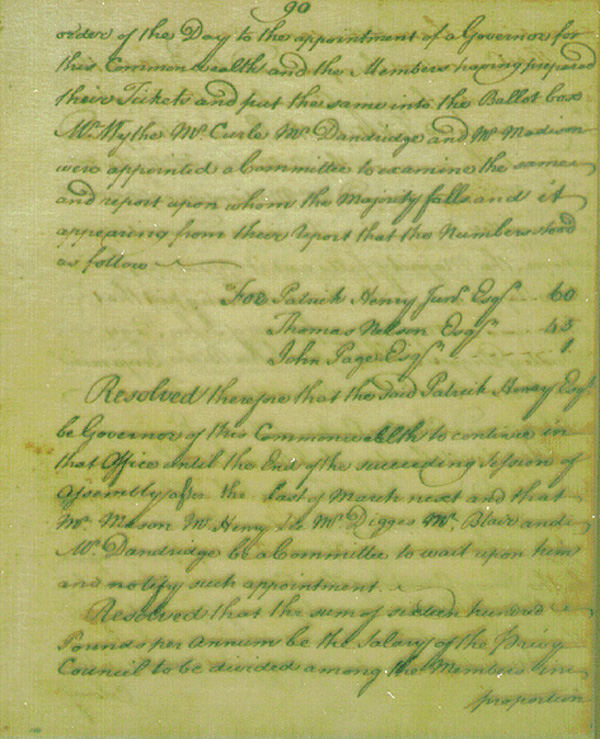 90
order of the Day to the appointment of a Governor for
this Commonwealth and the Members having prepared
their Tickets and put the same into the Ballot box
Mr. Wythe Mr. Curle Mr. Dandridge and Mr. Madison
were appointed a Committee to examine the same
and report upon whom the Majority falls and it
appearing from their report that the Numbers stood
as follow
For Patrick Henry Junr. Esqr. 60
Thomas Nelson Esqr. 45
John Page Esqr. 1
Resolved therefore that the said Patrick Henry Esqr
be Governor of this Commonwealth to continue in
that Office until the End of the succeeding Session of
Assembly after the last of March next and that
Mr. Mason Mr. Henry Lee Mr. Digges Mr. Blair and
Mr. Dandridge be a Committee to wait upon him
and notify such appointment.
Resolved that the sum of sixteen hundred
Pounds per Annum be the Salary of the Privy
Council to be divided among the Members in
proportion